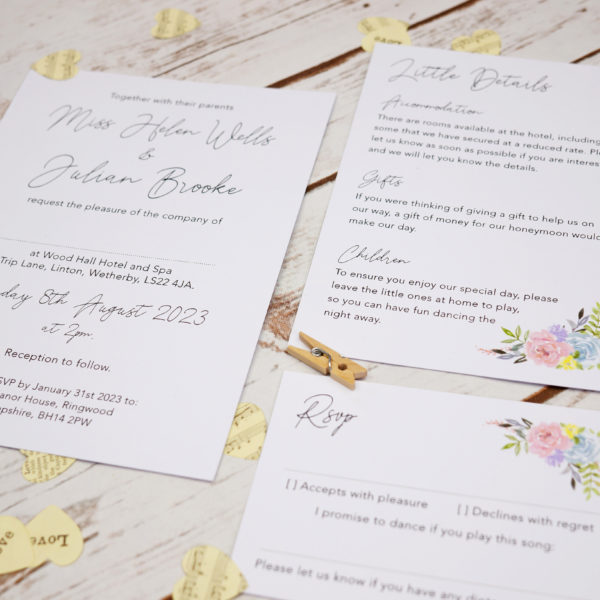 Together with their parents
Miss Helen Wells
&
Julian Brooke
request the pleasure of the company of
at Wood Hall Hotel and Spa
Trip Lane, Linton, Wetherby, LS22 4JA.
8th August 2023
at 2pm.
Reception to follow.
by January 31st 2023 to:
House, Ringwood
BH14 2PW
Little Details
Accommodation
There are rooms available at the hotel, including
some that we have secured at a reduced rate.
let us know as soon as possible if you are
and we will let you know the details.
Gifts
If you were thinking of giving a gift to help us on
our way, a gift of money for our honeymoon would
make our day.
Children
To ensure you enjoy our special day, please
leave the little ones at home to play,
so you can have fun dancing the
night away.
Rsvp
[ ] Accepts with pleasure [ ] Declines with regret
I promise to dance if you play this song:
Please let us know if you have any
Love